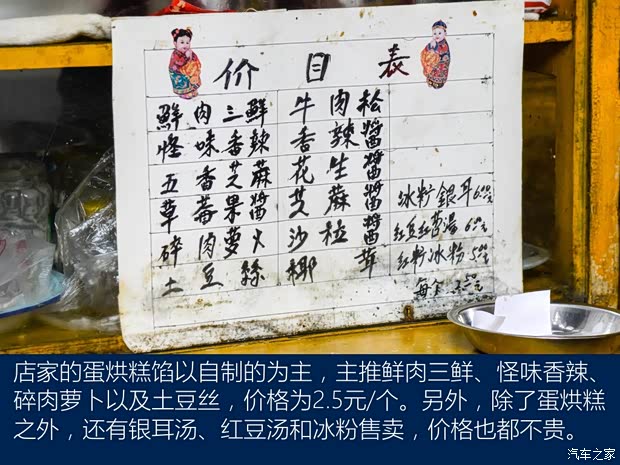 价目表
鮮肉三鮮 牛肉松
怪味香辣 香辣醬
五香芝蔴 花生醬
草莓果醬 芝蔴醬 冰籽銀耳6.00元
碎肉萝卜 沙拉醬 红豆红薯湯6元
土豆絲 椰蓉 红籽冰粉5.00元
每个2.50元
店家的蛋烘糕馅以自制的为主，主推鲜肉三鲜、怪味香辣、
碎肉萝卜以及土豆丝，价格为2.5元/个。另外，除了蛋烘糕
之外，还有银耳汤、红豆汤和冰粉售卖，价格也都不贵。
汽车之家